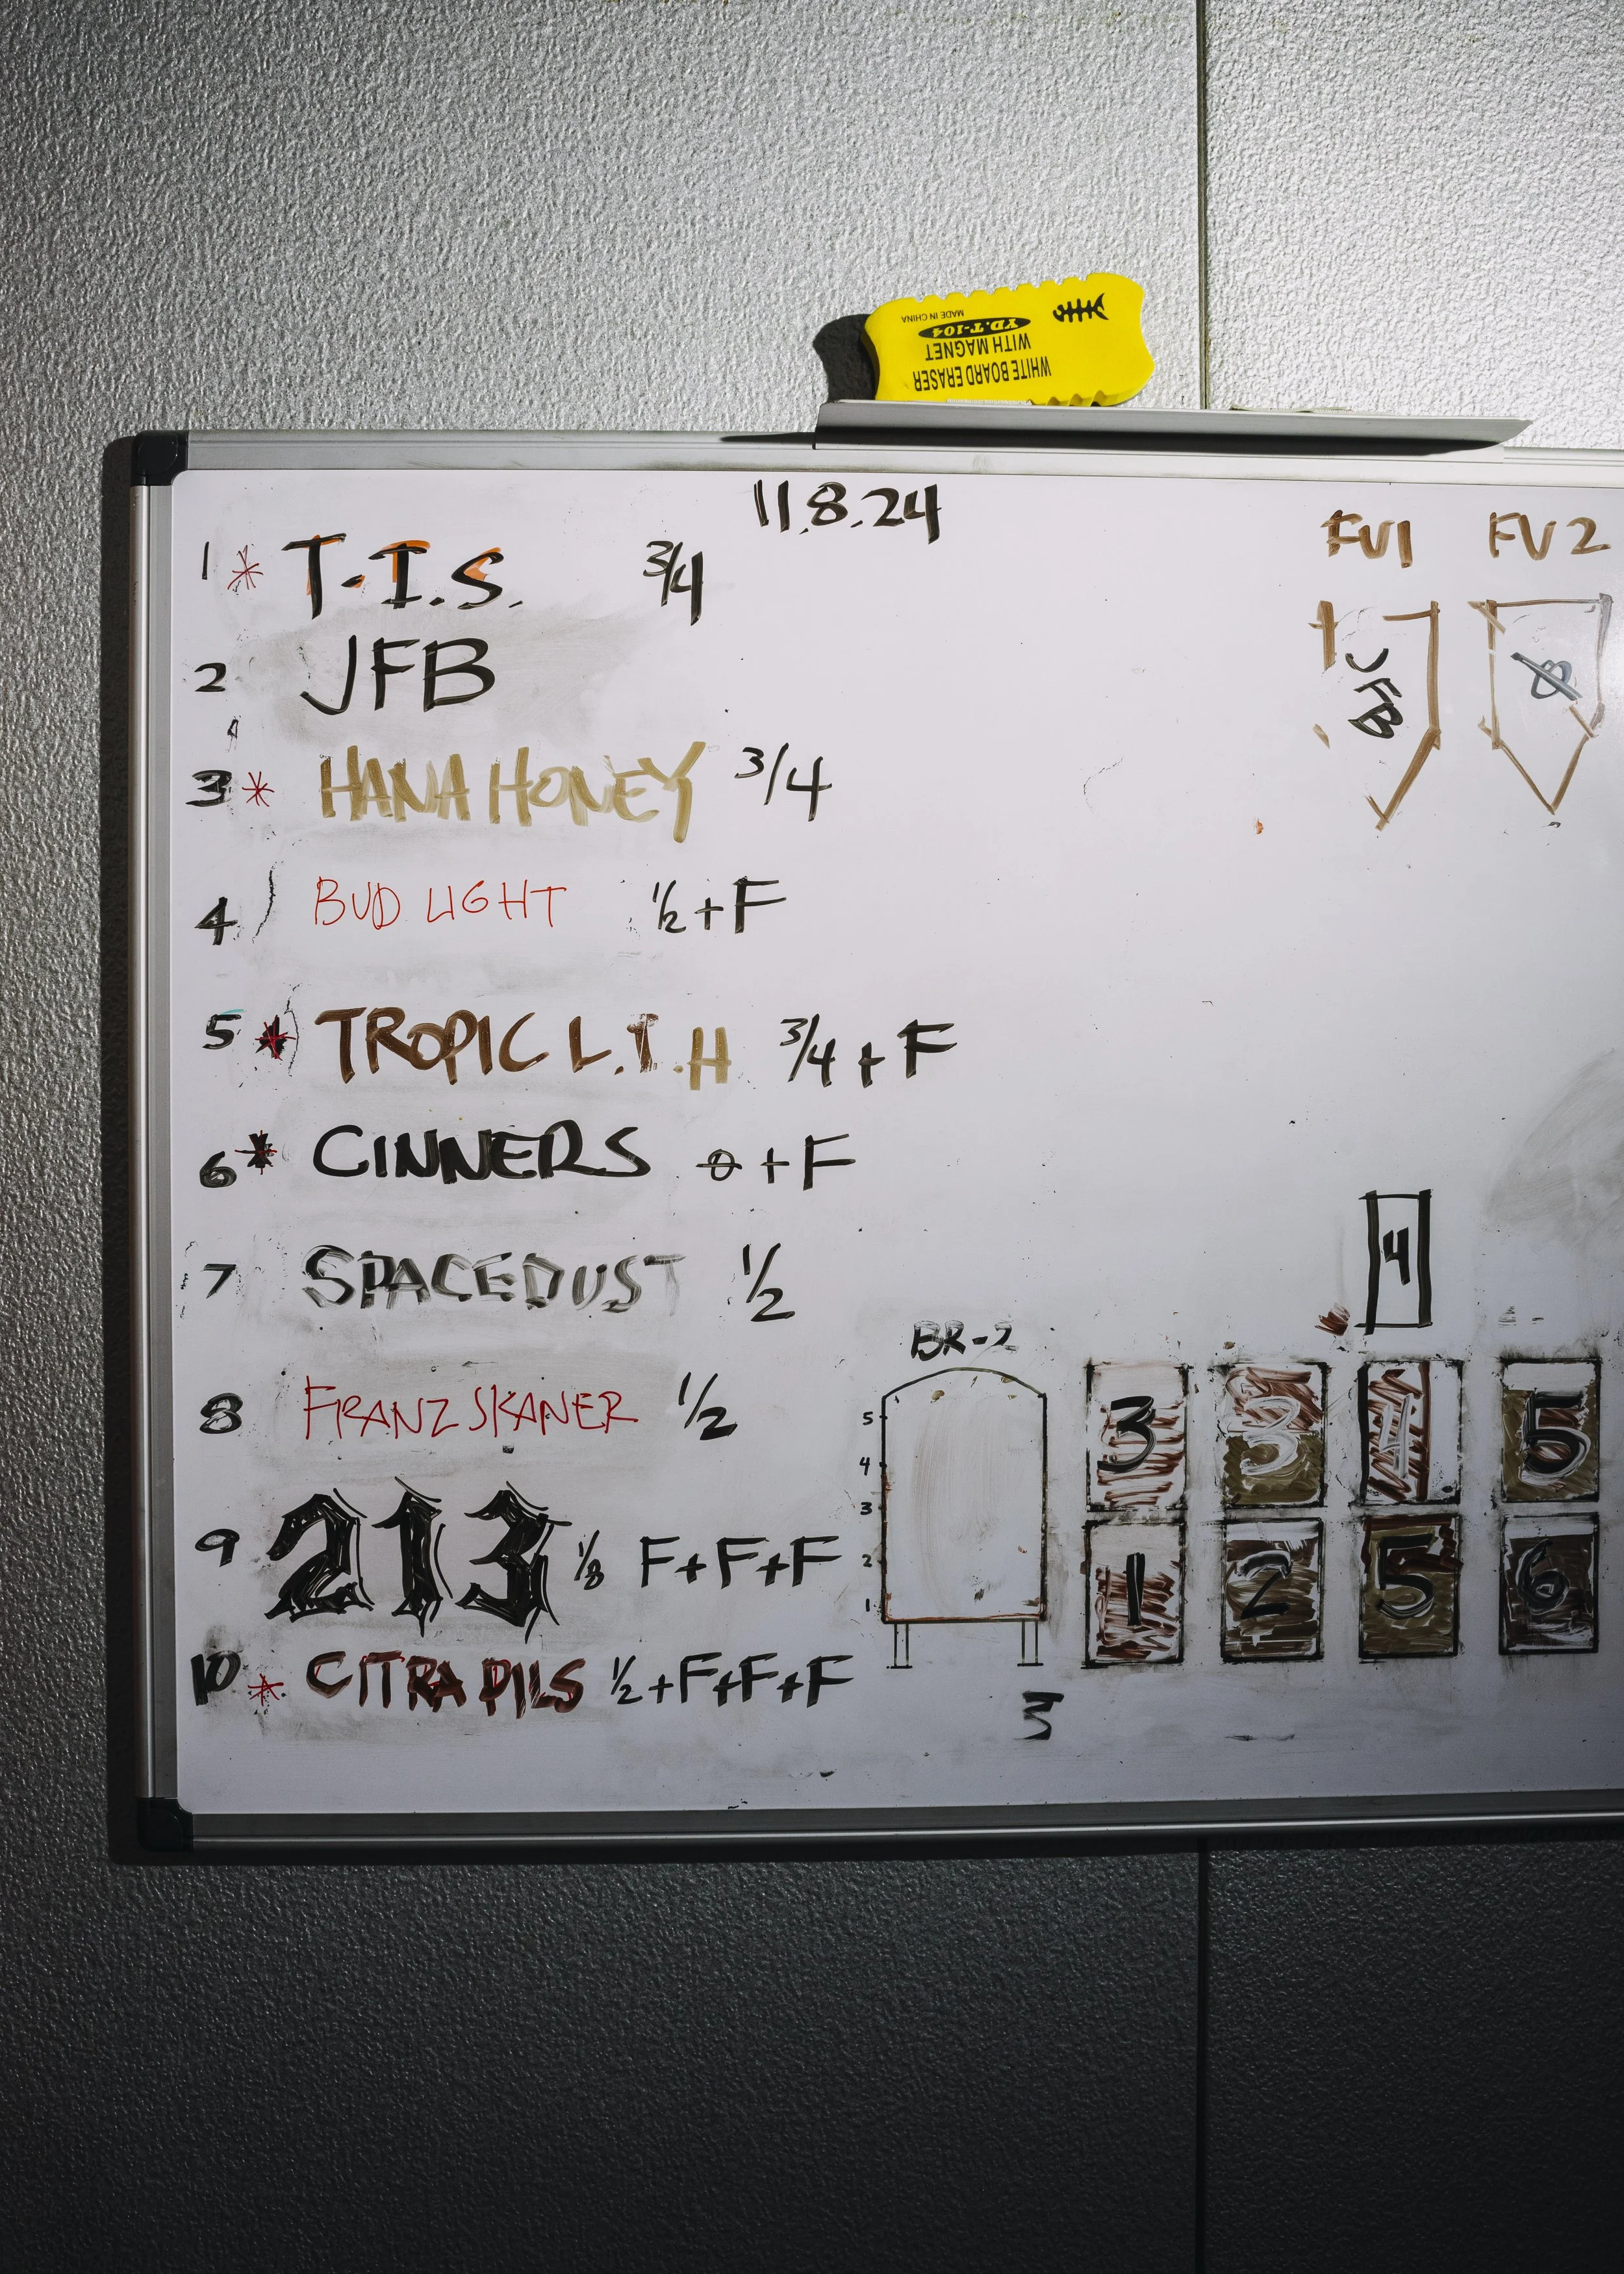 MADE IN CHINA
YD.T-104
WITH MAGNET
WHITE BOARD ERASER
11.8.24
1 * T.I.S. 3/4
2 JFB
3 * HANA HONEY 3/4
4 BUD LIGHT 1/2 + F
5 * TROPIC L.I.H 3/4 + F
6 * CINNERS 0 + F
7 SPACEDUST 1/2
8 FRANZ SKANER 1/2
9 213 1/8 F+F+F
10 * CITRA PILS 1/2 + F+F+F
FV1 FV2
JFB 0
BR-2
5
4
3
2
1
4
3 3 4 5
1 2 5 6
5